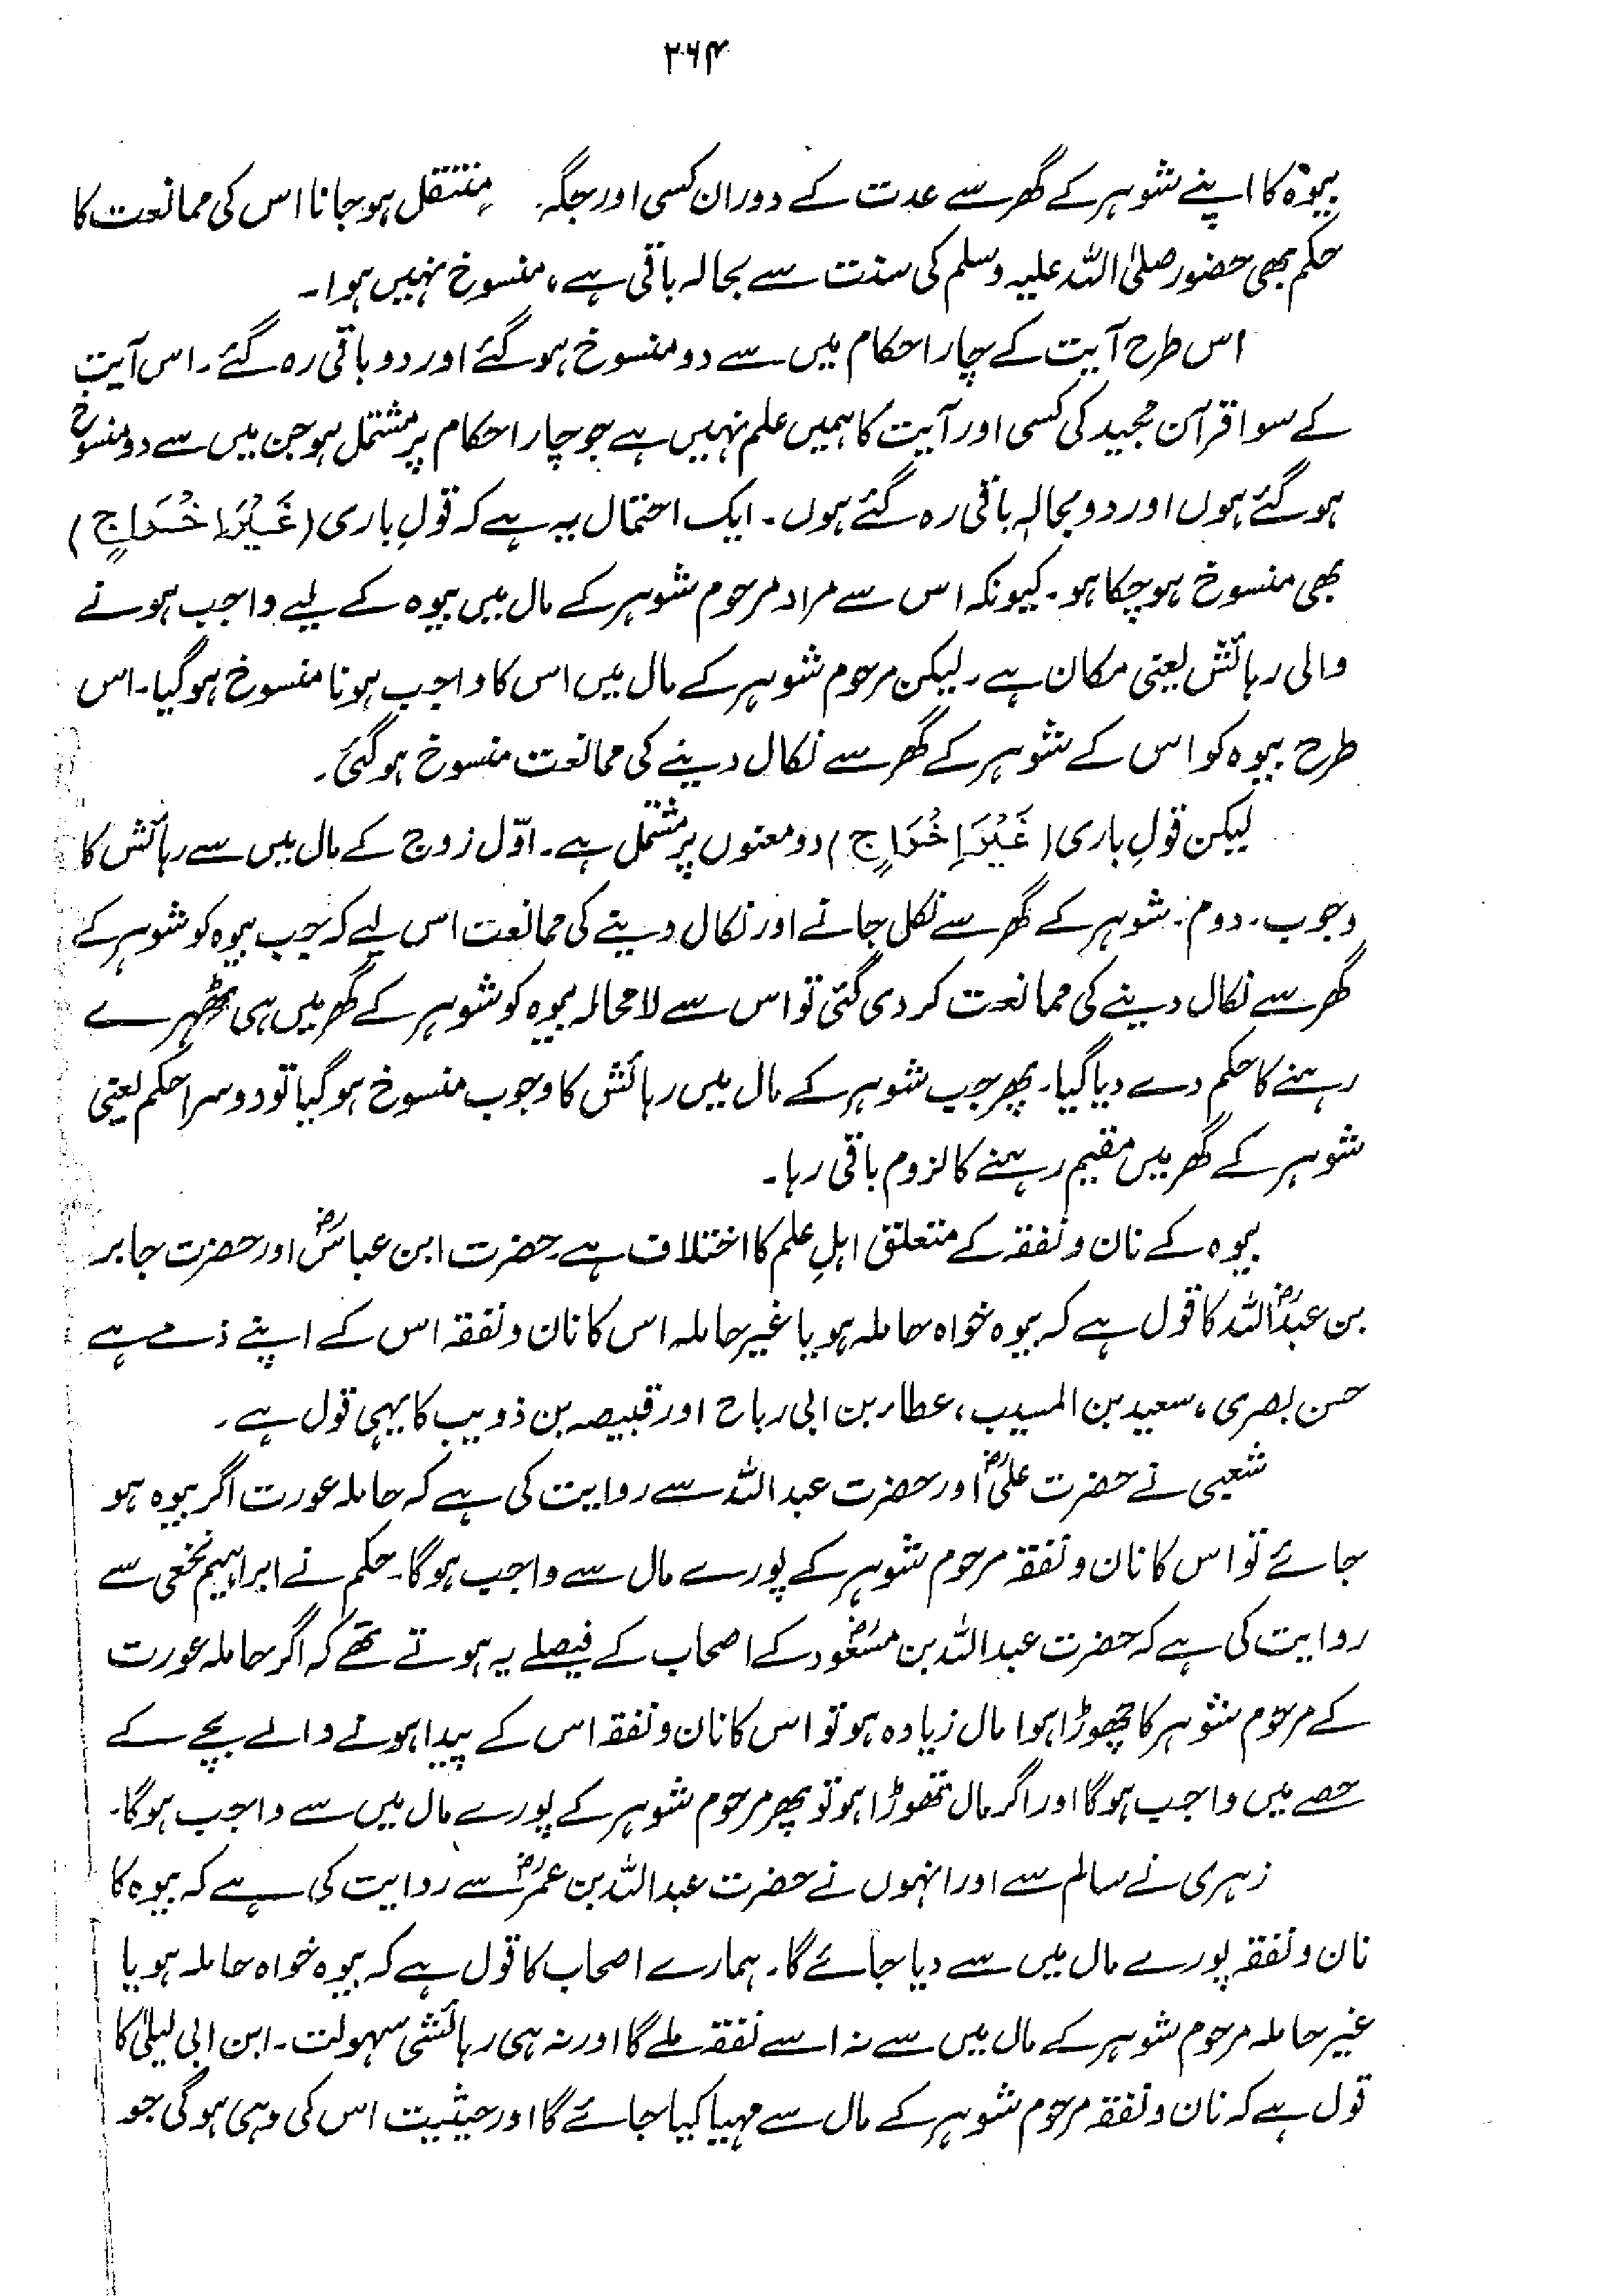 ۲۶۴
بیوہ کا اپنے شوہر کے گھر سے عدت کے دوران کسی اور جگہ منتقل ہو جانا اس کی ممانعت کا
حکم بھی حضور صلی اللہ علیہ وسلم کی سنت سے بحالہ باقی ہے، منسوخ نہیں ہوا۔
اس طرح آیت کے چار احکام میں سے دو منسوخ ہو گئے اور دو باقی رہ گئے۔ اس آیت
کے سوا قرآن مجید کی کسی اور آیت کا ہمیں علم نہیں ہے جو چار احکام پر مشتمل ہو جن میں سے دو منسوخ
ہو گئے ہوں اور دو بحالہ باقی رہ گئے ہوں۔ ایک احتمال یہ ہے کہ قولِ باری (غَیْرَ اِخْرَاجٍ)
بھی منسوخ ہو چکا ہو۔ کیونکہ اس سے مراد مرحوم شوہر کے مال میں بیوہ کے لیے واجب ہونے
والی رہائش یعنی مکان ہے۔ لیکن مرحوم شوہر کے مال میں اس کا واجب ہونا منسوخ ہو گیا۔ اس
طرح بیوہ کو اس کے شوہر کے گھر سے نکال دینے کی ممانعت منسوخ ہو گئی۔
لیکن قولِ باری (غَیْرَ اِخْرَاجٍ) دو معنوں پر مشتمل ہے۔ اوّل زوج کے مال میں سے رہائش کا
وجوب۔ دوم۔ شوہر کے گھر سے نکل جانے اور نکال دینے کی ممانعت اس لیے کہ جب بیوہ کو شوہر کے
گھر سے نکال دینے کی ممانعت کر دی گئی تو اس سے لامحالہ بیوہ کو شوہر کے گھر میں ہی ٹھہرے
رہنے کا حکم دے دیا گیا۔ پھر جب شوہر کے مال میں رہائش کا وجوب منسوخ ہو گیا تو دوسرا حکم یعنی
شوہر کے گھر میں مقیم رہنے کا لزوم باقی رہا۔
بیوہ کے نان و نفقہ کے متعلق اہلِ علم کا اختلاف ہے۔ حضرت ابن عباسؓ اور حضرت جابر
بن عبداللہؓ کا قول ہے کہ بیوہ خواہ حاملہ ہو یا غیر حاملہ اس کا نان و نفقہ اس کے اپنے ذمے ہے
حسن بصری، سعید بن المسیب، عطاء بن ابی رباح اور قبیصہ بن ذویب کا یہی قول ہے۔
شعبی نے حضرت علیؓ اور حضرت عبداللہ سے روایت کی ہے کہ حاملہ عورت اگر بیوہ ہو
جائے تو اس کا نان و نفقہ مرحوم شوہر کے پورے مال سے واجب ہوگا۔ حکم نے ابراہیم نخعی سے
روایت کی ہے کہ حضرت عبداللہ بن مسعودؓ کے اصحاب کے فیصلے یہ ہوتے تھے کہ اگر حاملہ عورت
کے مرحوم شوہر کا چھوڑا ہوا مال زیادہ ہو تو اس کا نان و نفقہ اس کے پیدا ہونے والے بچے کے
حصے میں واجب ہوگا اور اگر مال تھوڑا ہو تو پھر مرحوم شوہر کے پورے مال میں سے واجب ہوگا۔
زہری نے سالم سے اور انہوں نے حضرت عبداللہ بن عمرؓ سے روایت کی ہے کہ بیوہ کا
نان و نفقہ پورے مال میں سے دیا جائے گا۔ ہمارے اصحاب کا قول ہے کہ بیوہ خواہ حاملہ ہو یا
غیر حاملہ مرحوم شوہر کے مال میں سے نہ اسے نفقہ ملے گا اور نہ ہی رہائشی سہولت۔ ابن ابی لیلیٰ کا
قول ہے کہ نان و نفقہ مرحوم شوہر کے مال سے مہیا کیا جائے گا اور حیثیت اس کی وہی ہوگی جو